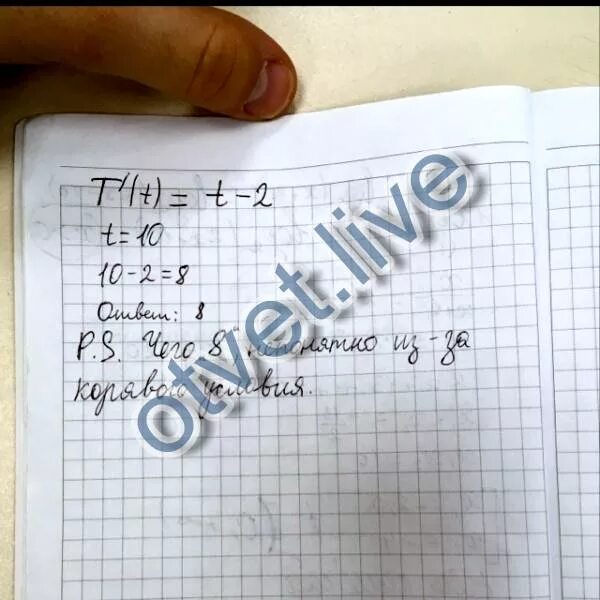 T'(t) = t - 2
t = 10
10 - 2 = 8
Ответ: 8
P.S. Чего 8, непонятно из-за
корявого условия.
otvet.live